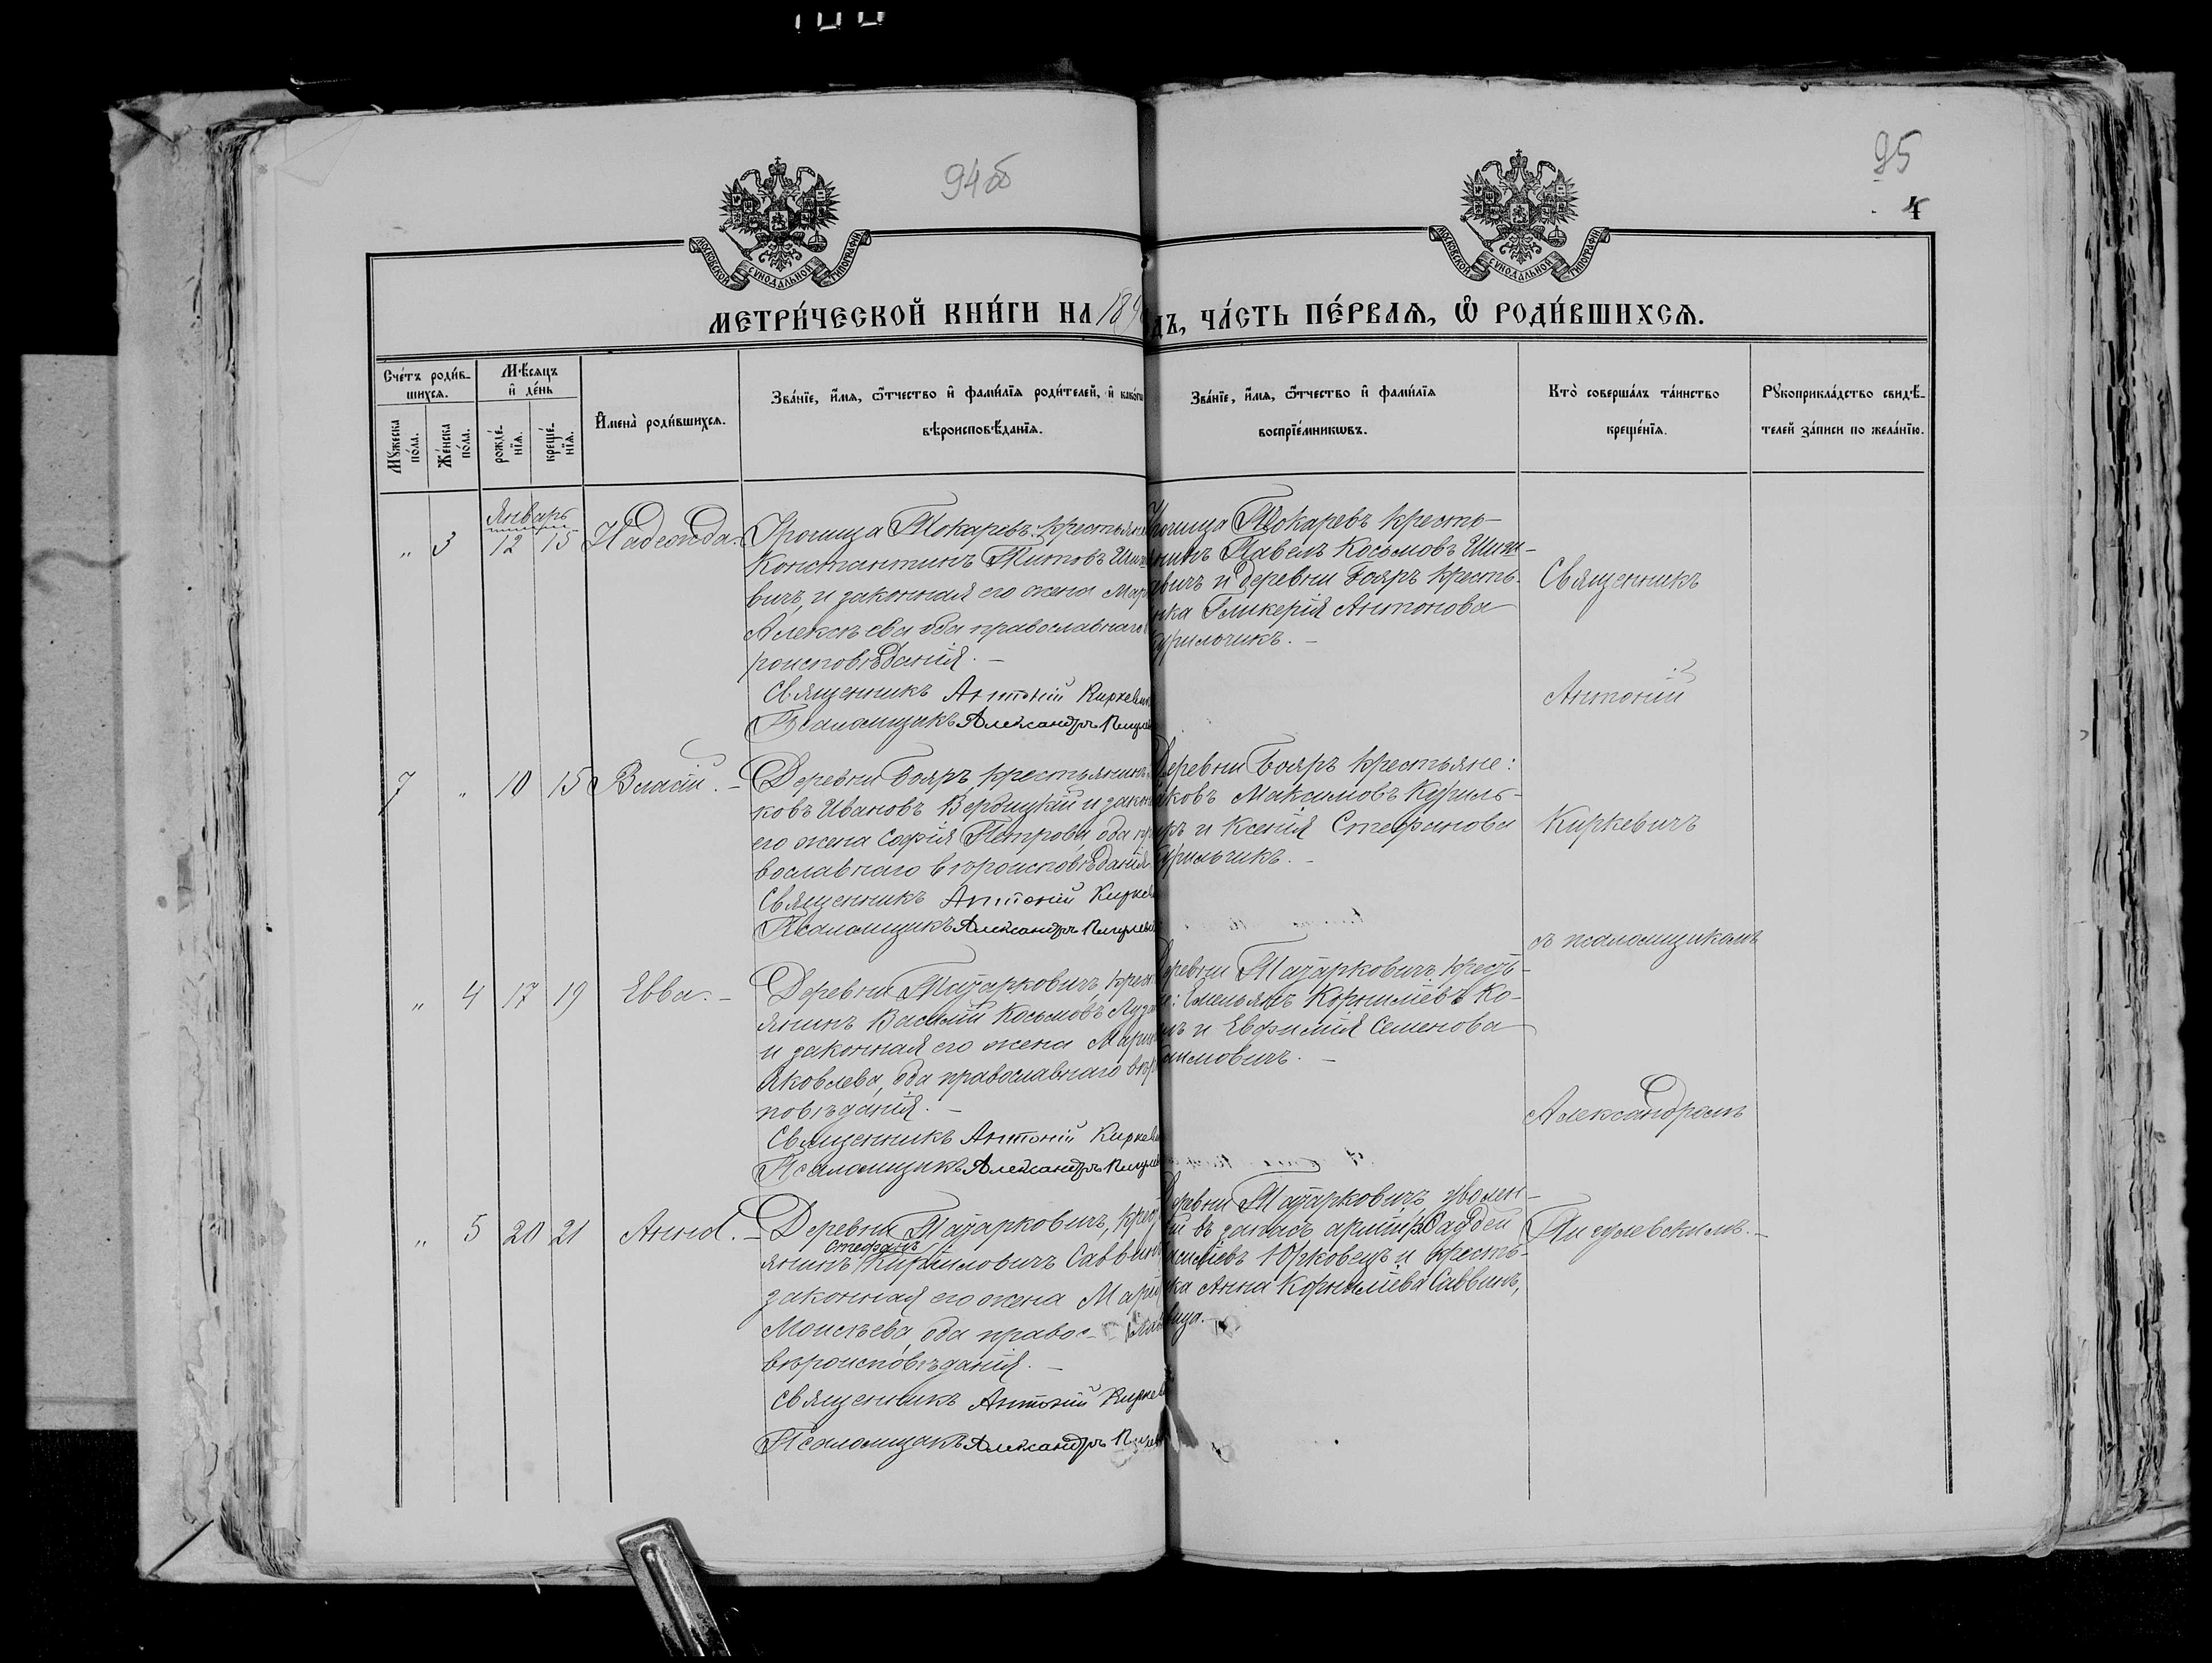 94 об
95
4
МОСКОВСКОЙ СѴНОДАЛЬНОЙ ТИПОГРАФІИ
МОСКОВСКОЙ СѴНОДАЛЬНОЙ ТИПОГРАФІИ
МЕТРИ́ЧЕСКОЙ КНИ́ГИ НА 189
ДЪ, ЧА́СТЬ ПЕ́РВАѦ, Ѡ҆ РОДИ́ВШИХСѦ.
Сче́тъ роди́в-
шихсѧ.
Мѣ́сяцъ
и҆ де́нь
Мꙋ́жеска
по́ла.
Же́нска
по́ла.
рожде́-
нїѧ.
креще́-
нїѧ.
И҆мена̀ роди́вшихсѧ.
Зва́нїе, и҆́мѧ, ѻ҆́тчество и҆ фами́лїѧ роди́телей, и҆ како́гѡ
вѣроисповѣ́данїѧ.
Зва́нїе, и҆́мѧ, ѻ҆́тчество и҆ фами́лїѧ
воспрїе́мникѡвъ.
Кто̀ соверша́лъ та́инство
креще́нїѧ.
Рꙋкоприкла́дство свидѣ́-
телей за́писи по жела́нїю.
Январь
" 3 12 15 Надежда.
Урочища Токаревъ: крестьян
Константинъ Титовъ Шиш
вичъ, и законная его жена Мар
Алексѣева оба православнаго
роисповѣданія. —
Священникъ Антоній Киркевич
Псаломщикъ Александръ Пигулев
Урочища Токаревъ кресть-
нинъ Павелъ Косьмовъ Шиш-
евичъ и деревни Бояръ кресть-
нка Гликерія Антонова
урильчикъ. —
Священникъ
Антоній
7 " 10 15 Власій. —
Деревни Бояръ крестьянинъ
ковъ Ивановъ Вербицкій и закон
его жена Софія Петрова, оба пр
вославнаго вѣроисповѣданія
Священникъ Антоній Киркев
Псаломщикъ Александръ Пигулев
Деревни Бояръ крестьяне:
аковъ Максимовъ Куриль-
къ и Ксенія Стефанова
урильчикъ. —
Киркевичъ
съ псаломщикомъ
" 4 17 19 Евва. —
Деревни Татарковичъ, крест
янинъ Василій Косьмовъ
и законная его жена Мари
Яковлева, оба православнаго вѣр
повѣданія. —
Священникъ Антоній Киркев
Псаломщикъ Александръ Пигулев
Деревни Татарковичъ, кресть-
не: Емельянъ Корнилiевъ Ко-
и Евфимія Семенова
аимовичъ. —
Александромъ
" 5 20 21 Анна. —
Деревни Татарковичъ, крес
Стефанъ
янинъ Кирилловичъ Саввин
законная его жена Марія
Моисѣева, оба правос- лав
вѣроисповѣданія. —
Священникъ Антоній Киркев
Псаломщикъ Александръ Пигулев
Деревни Татарковичъ, уволен-
ый въ запасъ арміи Фаддей
асиліевъ Юрковецъ и кресть-
нка Анна Корниліева Саввинъ,
вица. —
Пигулевскимъ. —